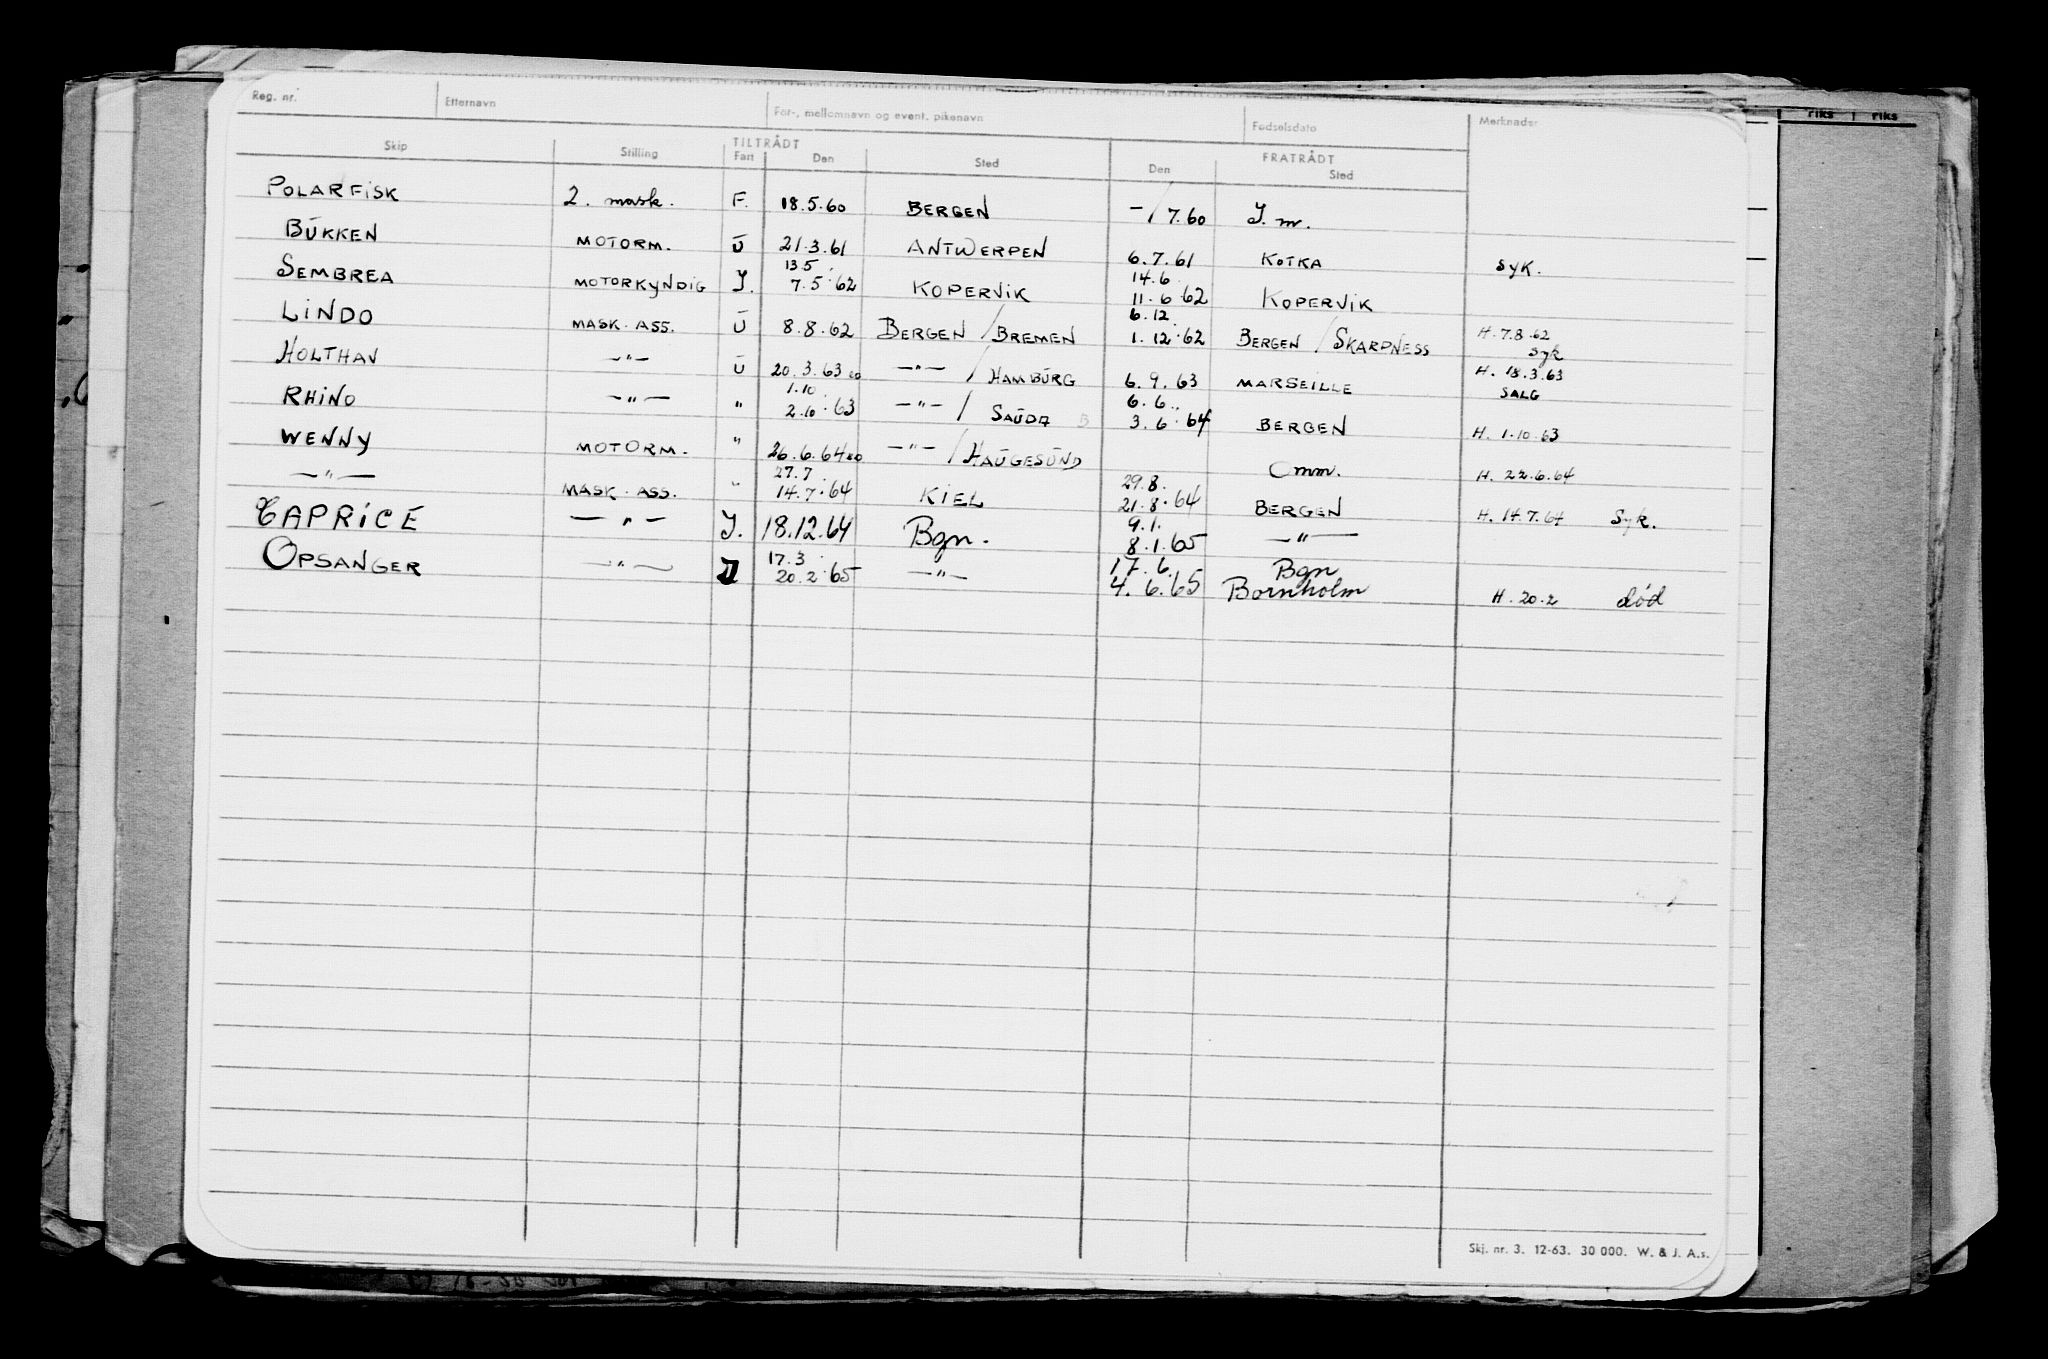 riks riks
Reg. nr. Etternavn For-, mellomnavn og event. pikenavn Fødselsdato Merknader
TILTRÅDT FRATRÅDT
Skip Stilling Fart Den Sted Den Sted
POLARFISK 2. mask. F. 18.5.60 BERGEN -/7.60 I. m.
BŪKKEN MOTORM. Ū 21.3.61 ANTWERPEN 6.7.61 KOTKA SYK.
13.5 14.6
SEMBREA MOTORKYNDIG I. 7.5.62 KOPERVIK 11.6.62 KOPERVIK
6.12
LINDO MASK. ASS. Ū 8.8.62 BERGEN / BREMEN 1.12.62 BERGEN / SKARPNESS H. 7.8.62
Syk
HOLTHAV —"— Ū 20.3.63 —"— / HAMBŪRG 6.9.63 MARSEILLE H. 18.3.63
SALG
1.10 6.6
RHINO —"— " 2.10.63 —"— / SAŪDA B 3.6.64 BERGEN H. 1.10.63
WENNY MOTORM. " 26.6.64 —"— / HAŪGESŪND Omm. H. 22.6.64
27.7 29.8.
—"— MASK. ASS. " 14.7.64 KIEL 21.8.64 BERGEN H. 14.7.64 Syk.
9.1.
CAPRICE —"— I. 18.12.64 Bgn. 8.1.65 —"—
17.3 17.6. Bgn
OPSANGER —"— I 20.2.65 —"— 4.6.65 Bornholm H. 20.2 død
Skj. nr. 3. 12-63. 30 000. W. & J. A.s.